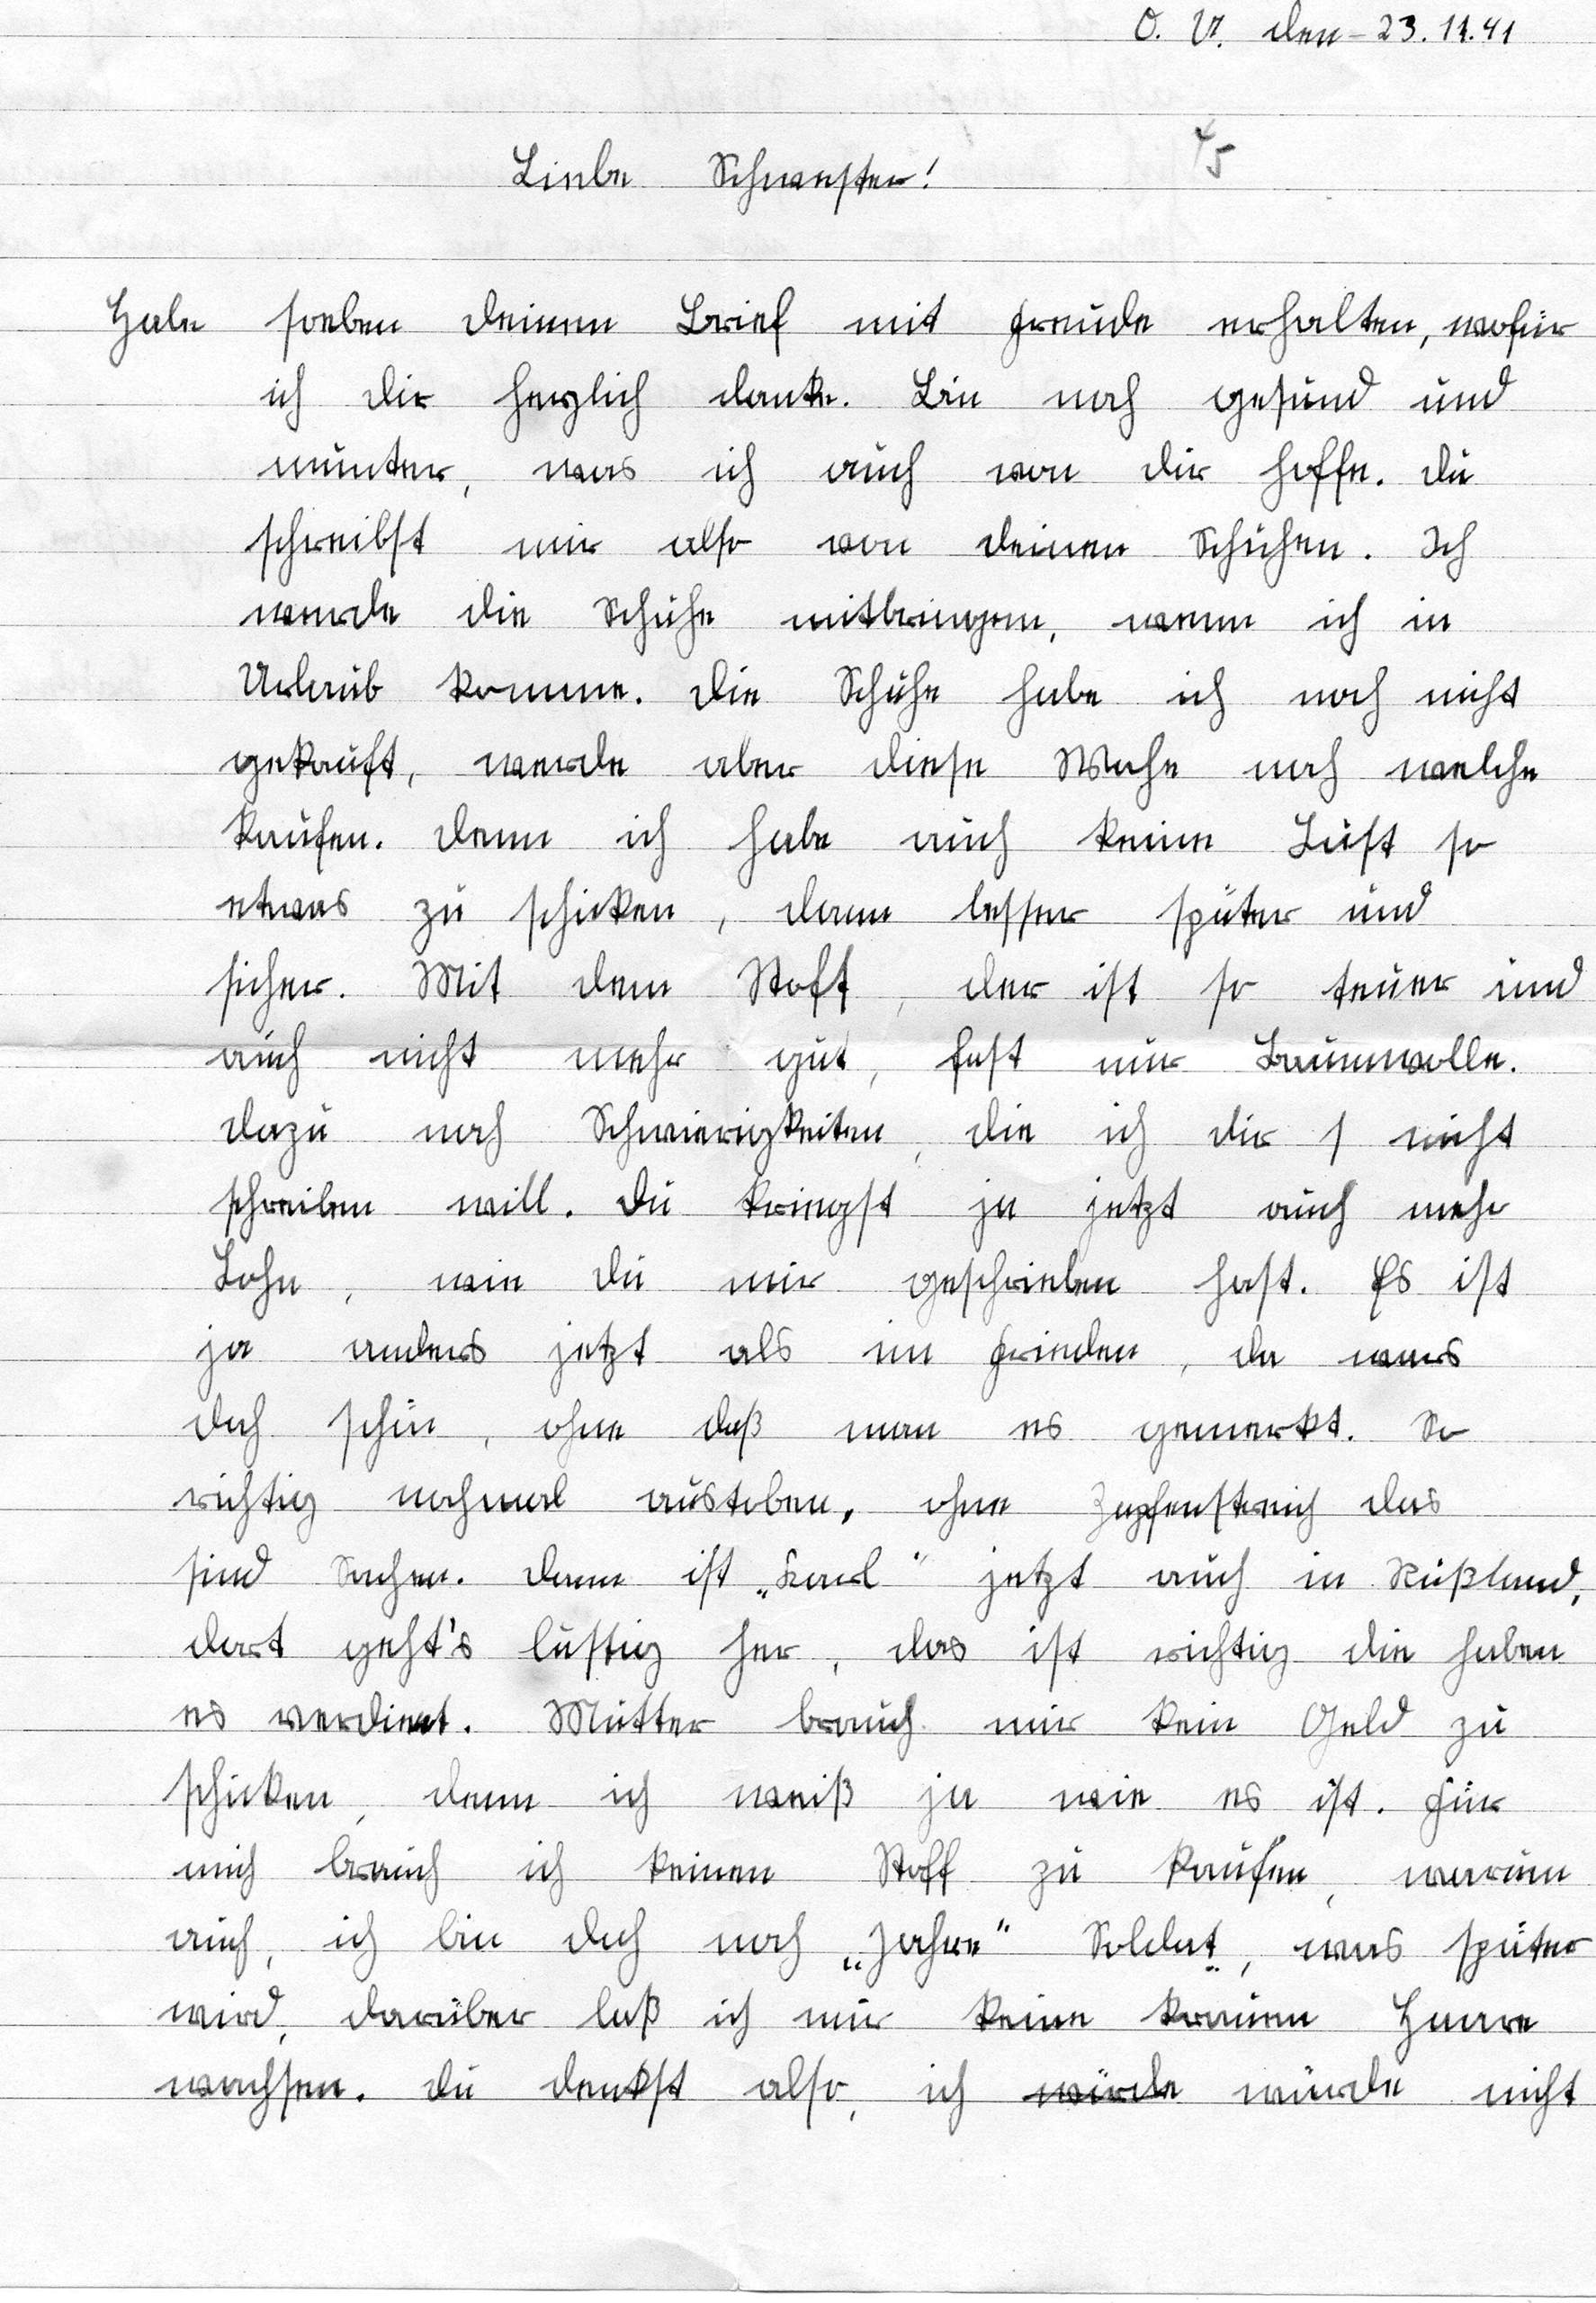 O. U. den 23.11.41
45
Liebe Schwester!
Habe soeben deinen Brief mit Freude erhalten, wofür
ich dir herzlich danke. Bin noch gesund und
munter, was ich auch von dir hoffe. Du
schreibst mir also von deinen Schuhen. Ich
werde die Schuhe mitbringen, wenn ich in
Urlaub komme. Die Schuhe habe ich noch nicht
gekauft, werde aber diese Woche noch welche
kaufen. Denn ich habe auch keine Lust so
etwas zu schicken, dann besser später und
sicher. Mit dem Stoff, der ist so teuer und
auch nicht mehr gut, fast nur Baumwolle.
Dazu noch Schwierigkeiten, die ich dir nicht
schreiben will. Du kriegst ja jetzt auch mehr
Lohn, wie du mir geschrieben hast. Es ist
ja anders jetzt als im Frieden, da wars
doch schön, ohne daß man es gemerkt. So
richtig nochmal austoben, ohne Zapfenstreich das
sind Sachen. Dann ist „Karl" jetzt auch in Rußland,
dort geht's lustig her, das ist richtig die haben
es verdient. Mutter brauch mir kein Geld zu
schicken, denn ich weiß ja wie es ist. Für
mich brauch ich keinen Stoff zu kaufen, warum
auch, ich bin doch noch „Jahre" Soldat, was später
wird, darüber laß ich mir keine krauen Haare
wachsen. Du denkst also, ich würde würde nicht